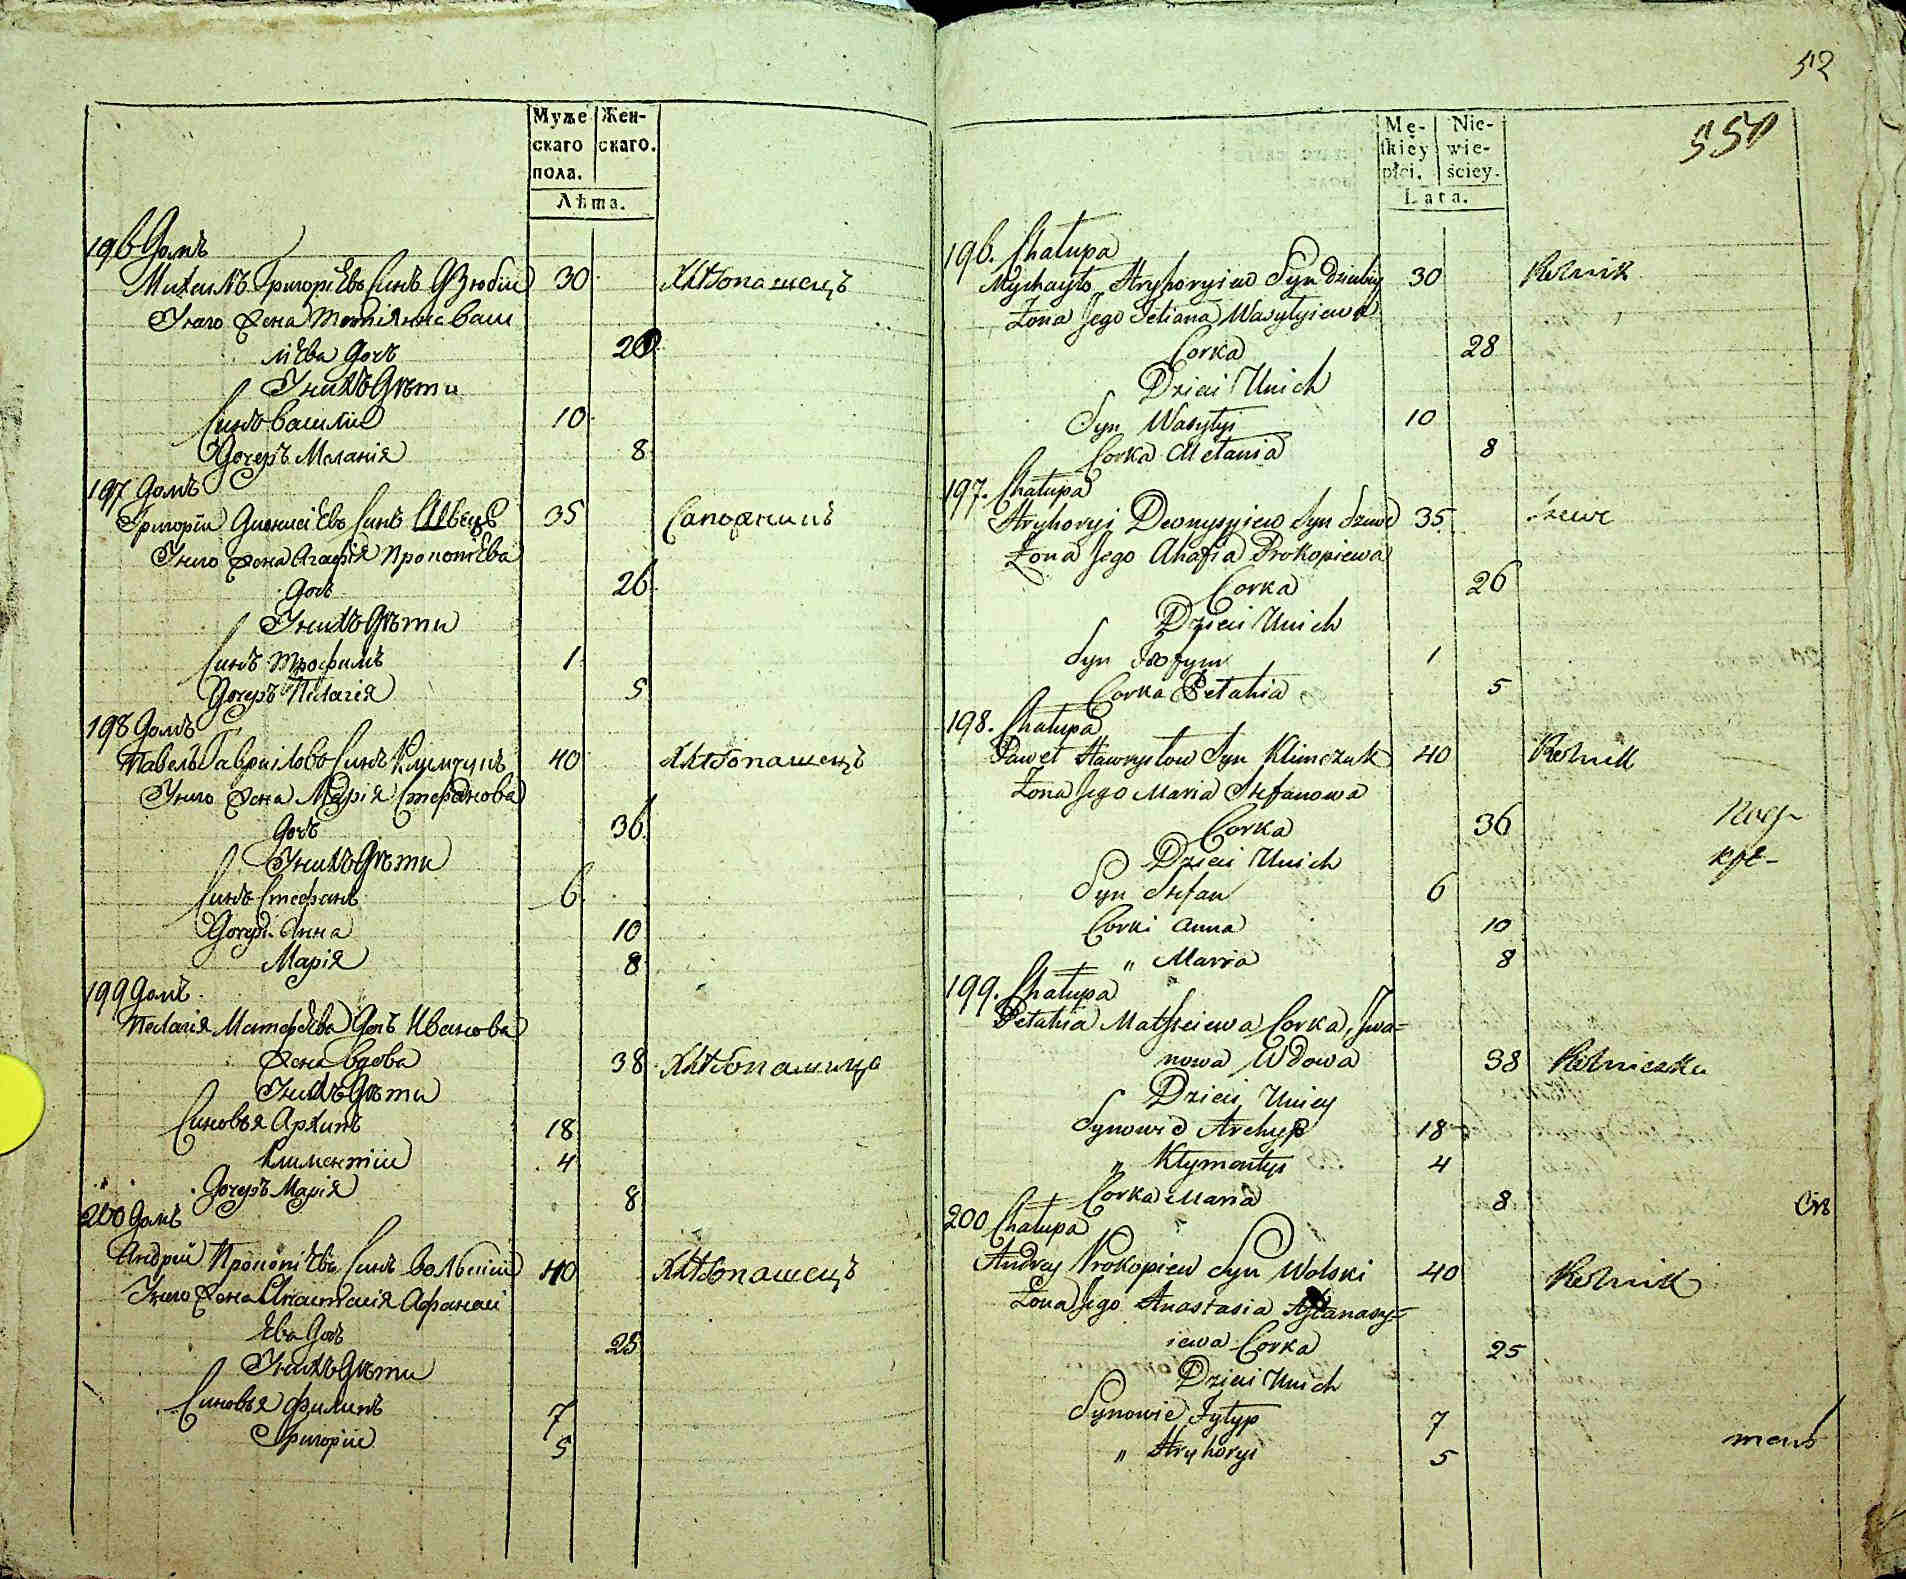 Муже
скаго
пола.
Жен-
скаго.
Лѣта.
196 Домъ
Михаилъ Григорiевъ Синъ Дзюбiй 30 хлѣбопашецъ
У него жена Василиева
дочь 28
У нихъ дѣти
Синъ Василий 10
Дочерь Меланiя 8
197 Домъ
Григорiй Дионисiевъ Синъ Швецъ 35 Сапожникъ
У него жена Агафiя Прокопiева
дочь 26
У нихъ дѣти
Синъ Трофимъ 1
Дочерь Пелагiя 5
198 Домъ
Павелъ Гаврiиловъ Синъ Климчукъ 40 хлѣбопашецъ
У него жена Марiя Стефанова
дочь 36
У нихъ дѣти
Синъ Стефанъ 6
Дочери Анна 10
Марiя 8
199 Домъ
Пелагiя Матфѣева дочь Иванова
жена вдова 38 хлѣбопашица
У нихъ дѣти
Синовья Архипъ 18
Климентiй 4
Дочерь Марiя 8
200 Домъ
Андрей Прокопiевъ Синъ Вольский 40 хлѣбопашецъ
У него жена Анастасiя Афанасi
ева дочь 25
У нихъ дѣти
Синовья Филипъ 7
Григорiй 5
52
Mę-
ſkiéy
płci.
Nie-
wie-
ściey.
Lata.
196. Chałupa
Mychayło Hryhoryiew Syn Dziubiy 30 Rolnik
Żona Jego Tetiana Wasylyiewa
Corka 28
Dzieci Unich
Syn Wasylyi 10
Corka Melania 8
197. Chałupa
Hryhoryi Deonysyiew Syn Szwec 35 Szewc
Żona Jego Ahafia Prokopiewa
Corka 26
Dzieci Unich
Syn Trofym 1
Corka Pelahia 5
198. Chałupa
Paweł Hawryłow Syn Klimczuk 40 Rolnik
Żona Jego Maria Stefanowa
Corka 36
Dzieci Unich
Syn Stefan 6
Corki Anna 10
" Maria 8
199. Chałupa
Pelahia Matfieiewa Corka, Iwa=
nowa Wdowa 38 Rolniczka
Dzieci Uniey
Synowie Archyp 18
" Klymentyi 4
Corka Maria 8
200 Chałupa
Andrey Prokopiew Syn Wolski 40 Rolnik
Żona Jego Anastasia Afanasy=
iewa Corka 25
Dzieci Unich
Synowie Fylyp 7
" Hryhoryi 5